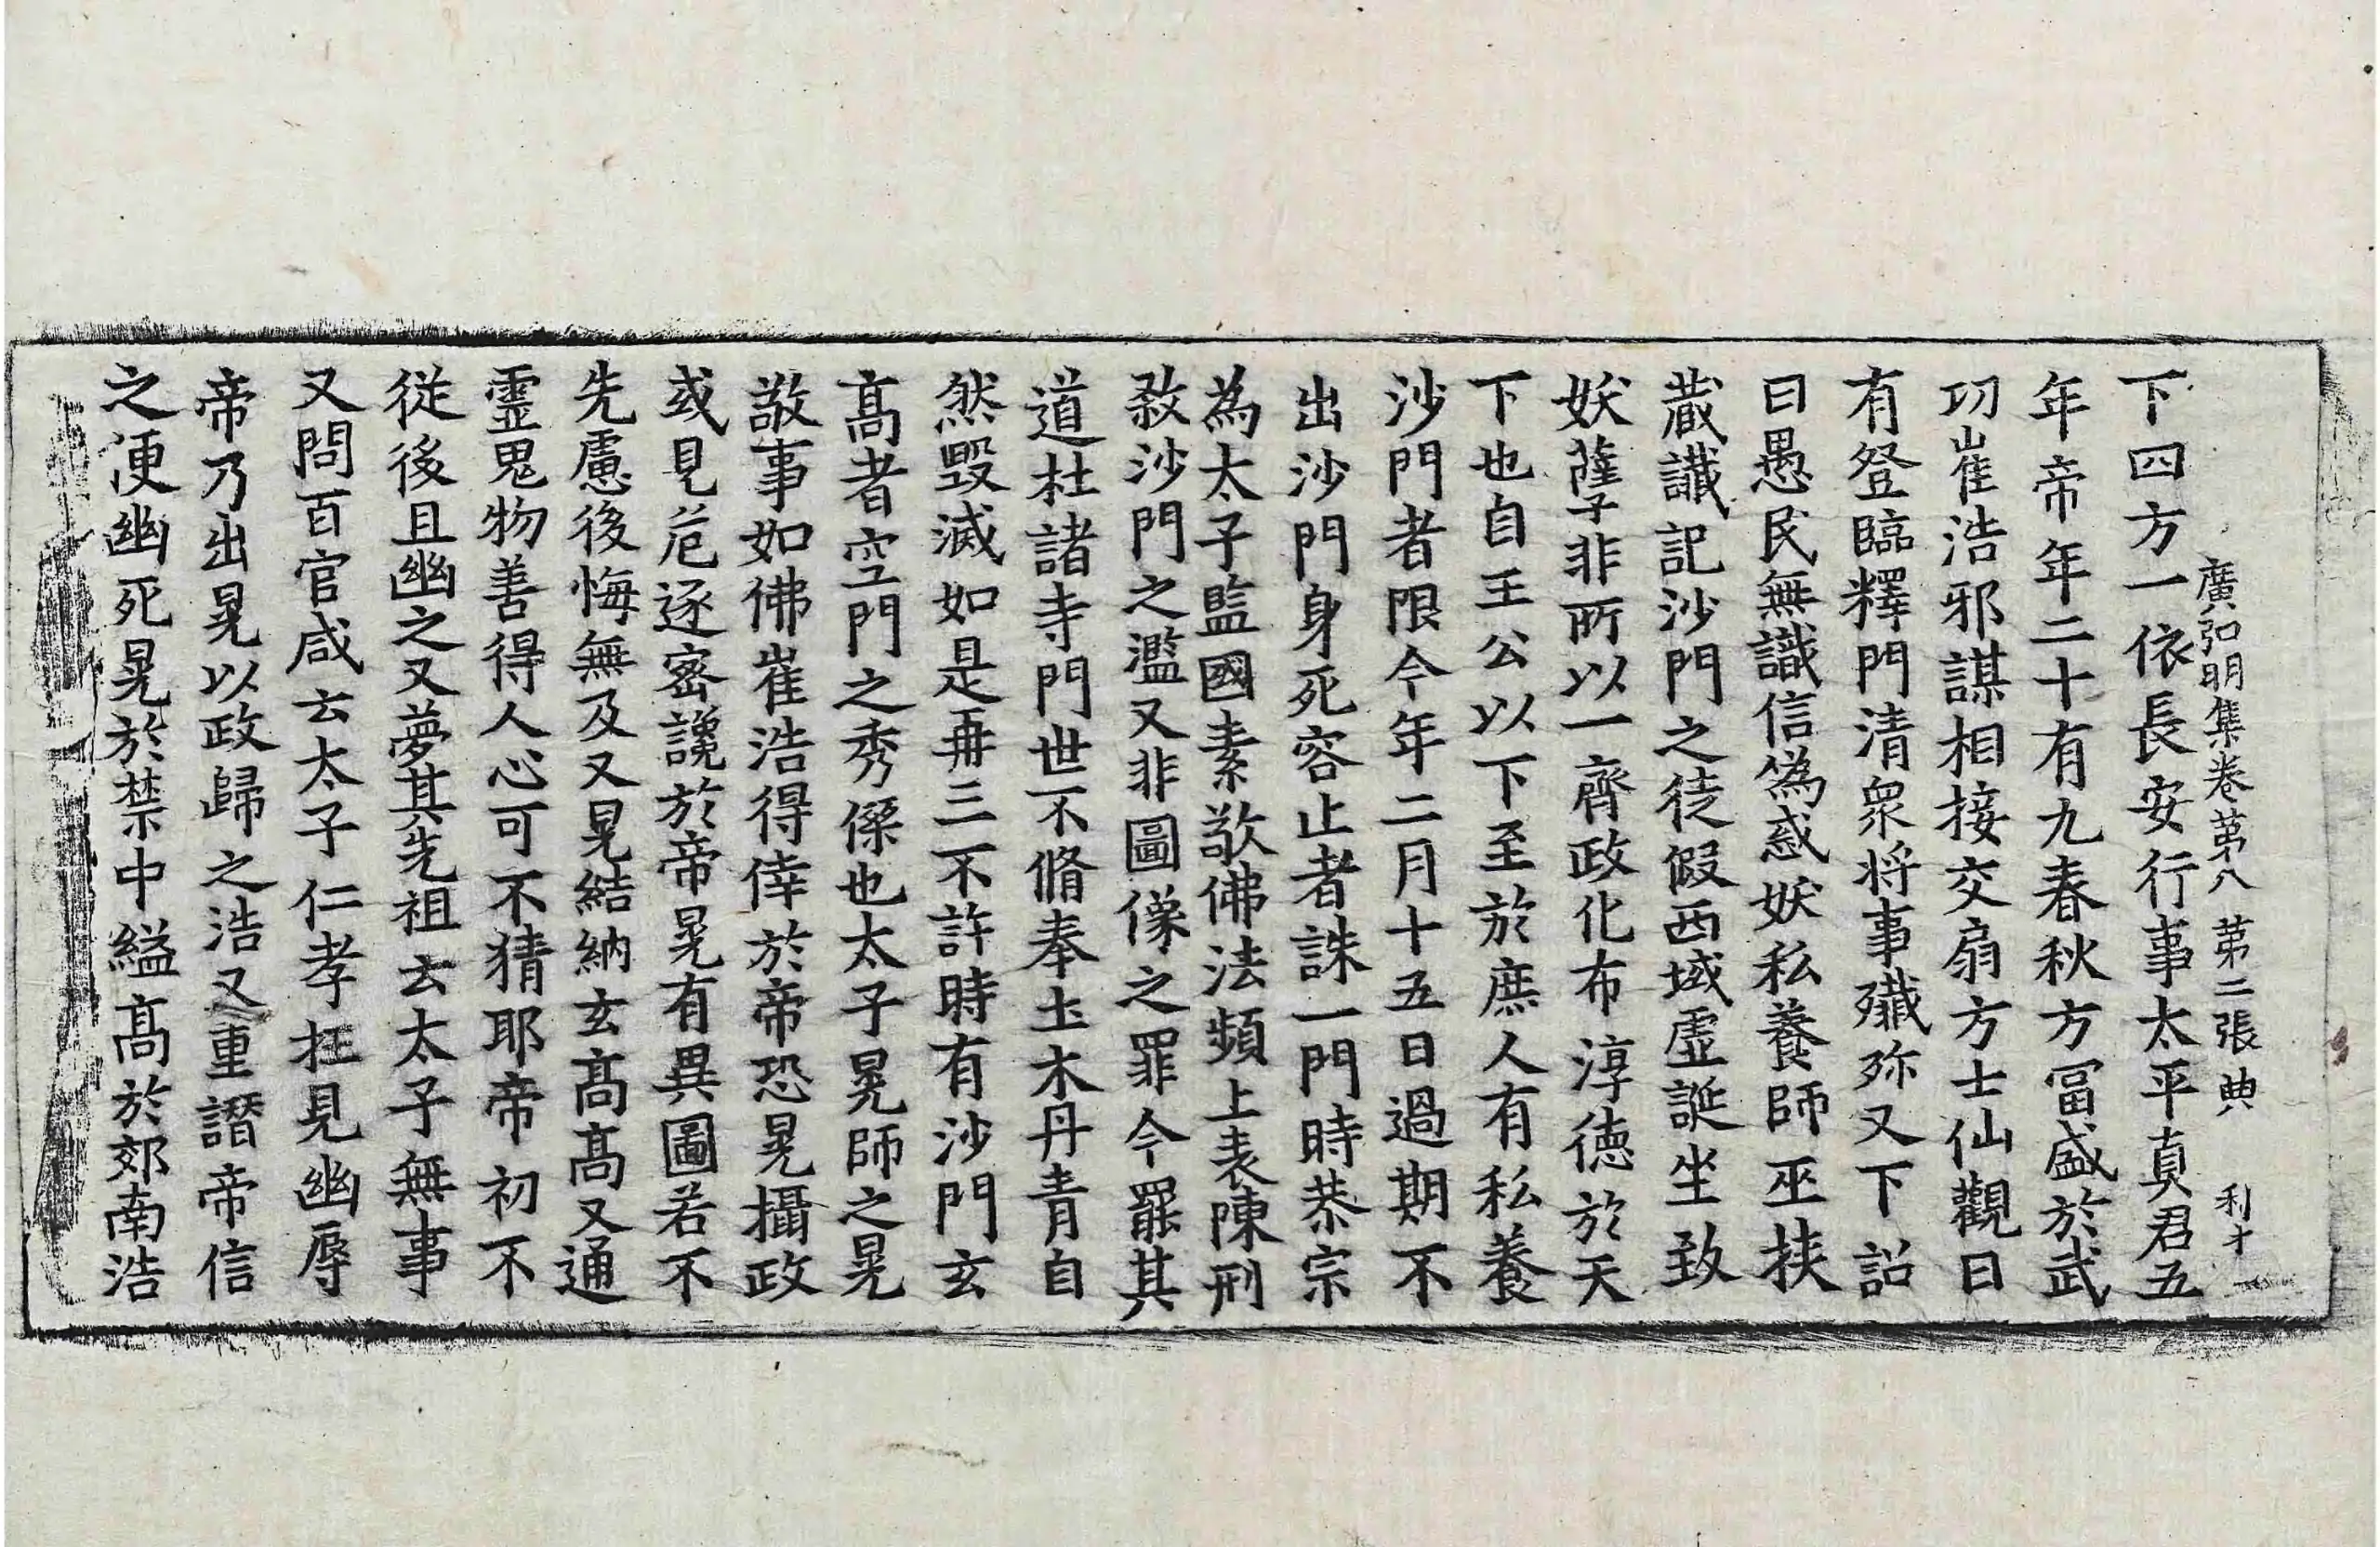 廣弘明集卷苐八 苐二張 典 利才
下四方一依長安行事太平真君五
年帝年二十有九春秋方冨盛於武
功崔浩邪謀相接交扇方士仙觀日
有登臨釋門清衆将事殲殄又下詔
曰愚民無識信偽惑妖私養師巫挾
藏讖記沙門之徒假西域虛誕坐致
妖孽非所以一齊政化布淳德於天
下也自王公以下至於庶人有私養
沙門者限今年二月十五日過期不
出沙門身死容止者誅一門時恭宗
為太子監國素敬佛法頻上表陳刑
敎沙門之濫又非圖像之罪今罷其
道杜諸寺門世不脩奉土木丹青自
然毀滅如是再三不許時有沙門玄
髙者空門之秀傑也太子晃師之晃
敬事如佛崔浩得倖於帝恐晃攝政
或見危逐密讒於帝晃有異圖若不
先慮後悔無及又晃結納玄髙髙又通
靈鬼物善得人心可不猜耶帝初不
從後且幽之又夢其先祖云太子無事
又問百官咸云太子仁孝枉見幽辱
帝乃出晃以政歸之浩又重譖帝信
之便幽死晃於禁中縊髙於郊南浩